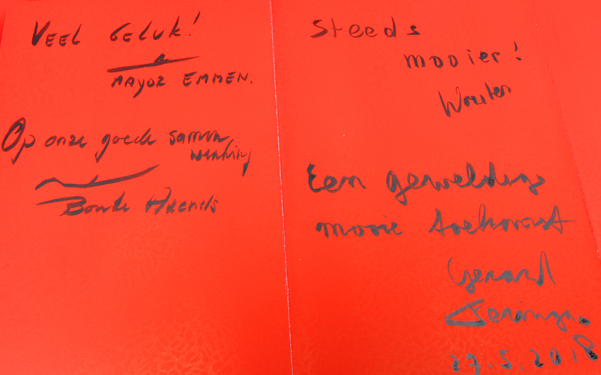 VEEL GELUK!
MAYOR EMMEN.
Op onze goede samen
werking
Steeds
mooier!
Wouter
Een geweldige
mooie toekomst
Gerard
27.5.2018